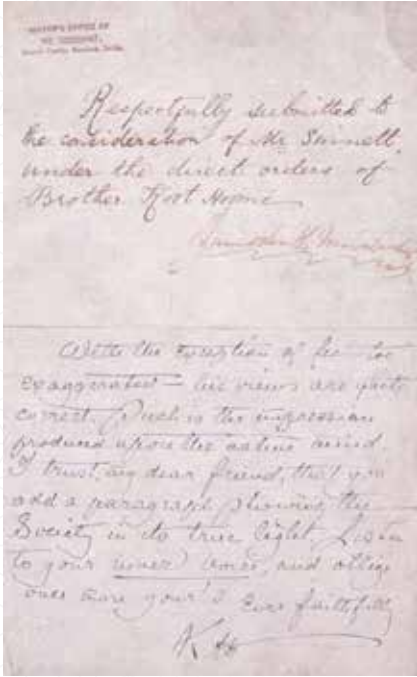 Respectfully submitted to
the consideration of Mr Sinnett,
under the direct orders of
Brother Koot Hoomi
With the exception of fee — too
exaggerated — his views are quite
correct. Such is the impression
produced upon the native mind.
I trust, my dear friend, that you
add a paragraph showing the
Society in its true light. Listen
to your inner voice, and oblige
once more your's Ever faithfully
K H